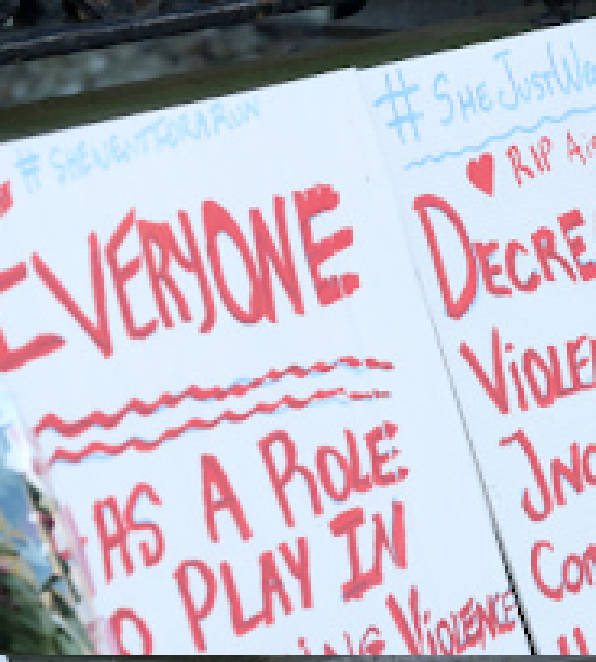 #SHEWENTFORARUN
EVERYONE
AS A ROLE
PLAY IN
VIOLENCE
#SHEJUSTWE
RIP Ai
DECRE
VIOLEN
INC
CO